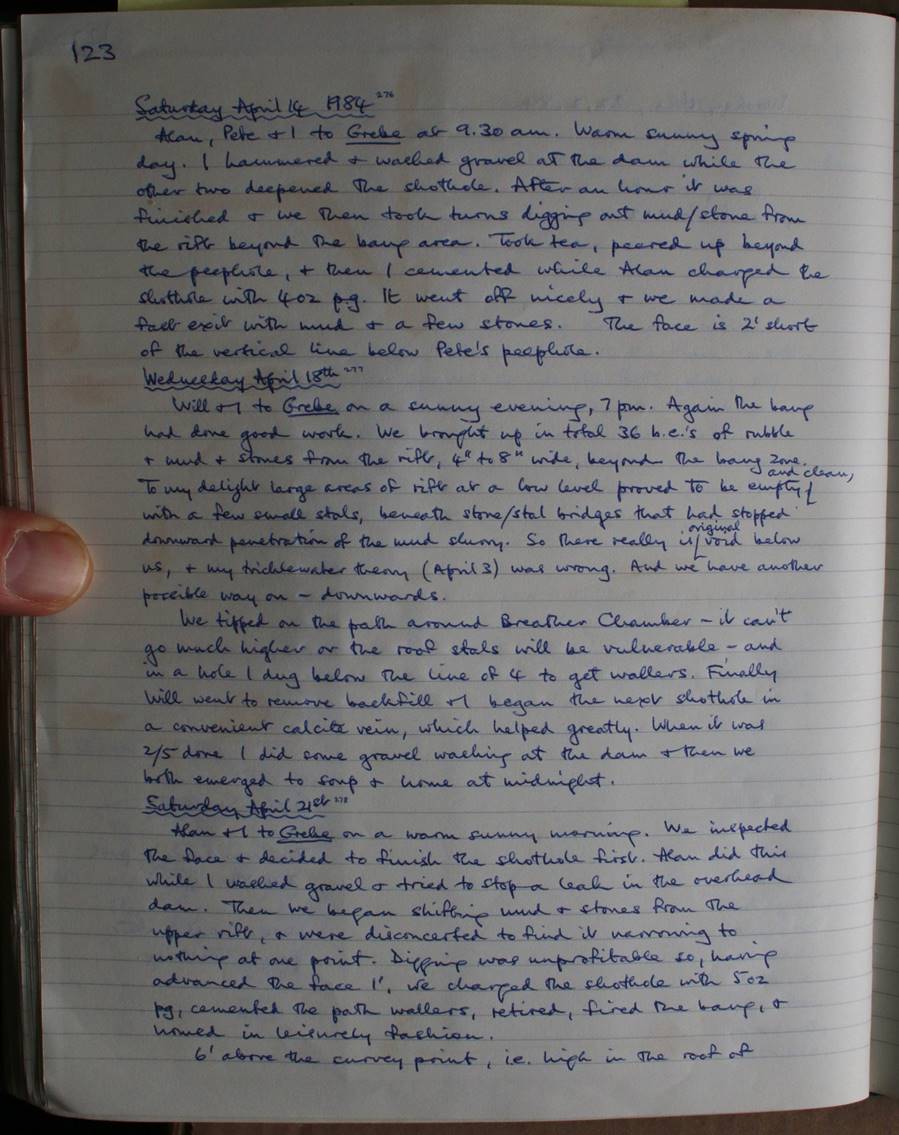 123
Saturday April 14 1984 276
Alan, Pete + I to Grebe at 9.30 am. Warm sunny spring
day. I hammered + washed gravel at the dam while the
other two deepened the shothole. After an hour it was
finished + we then took turns digging out mud/stone from
the rift beyond the bang area. Took tea, peered up beyond
the peephole, + then I cemented while Alan charged the
shothole with 4oz pg. It went off nicely + we made a
fast exit with mud + a few stones. The face is 2' short
of the vertical line below Pete's peephole.
Wednesday April 18th 277
Will + I to Grebe on a sunny evening, 7 pm. Again the bang
had done good work. We brought up in total 36 b.e.'s of rubble
+ mud + stones from the rift, 4" to 8" wide, beyond the bang zone.
To my delight large areas of rift at a low level proved to be empty and clean,
with a few small stals, beneath stone/stal bridges that had stopped
downward penetration of the mud slurry. So there really is original void below
us, + my tricklewater theory (April 3) was wrong. And we have another
possible way on - downwards.
We tipped on the path around Breather Chamber - it can't
go much higher or the roof stals will be vulnerable - and
in a hole I dug below the line of 4 to get wallers. Finally
Will went to remove backfill + I began the next shothole in
a convenient calcite vein, which helped greatly. When it was
2/5 done I did some gravel washing at the dam + then we
both emerged to soup + home at midnight.
Saturday April 21st 278
Alan + I to Grebe on a warm sunny morning. We inspected
the face + decided to finish the shothole first. Alan did this
while I washed gravel + tried to stop a leak in the overhead
dam. Then we began shifting mud + stones from the
upper rift, + were disconcerted to find it narrowing to
nothing at one point. Digging was unprofitable so, having
advanced the face 1', we charged the shothole with 5oz
pg, cemented the path wallers, retired, fired the bang, +
homed in leisurely fashion.
6' above the survey point, i.e. high in the roof of